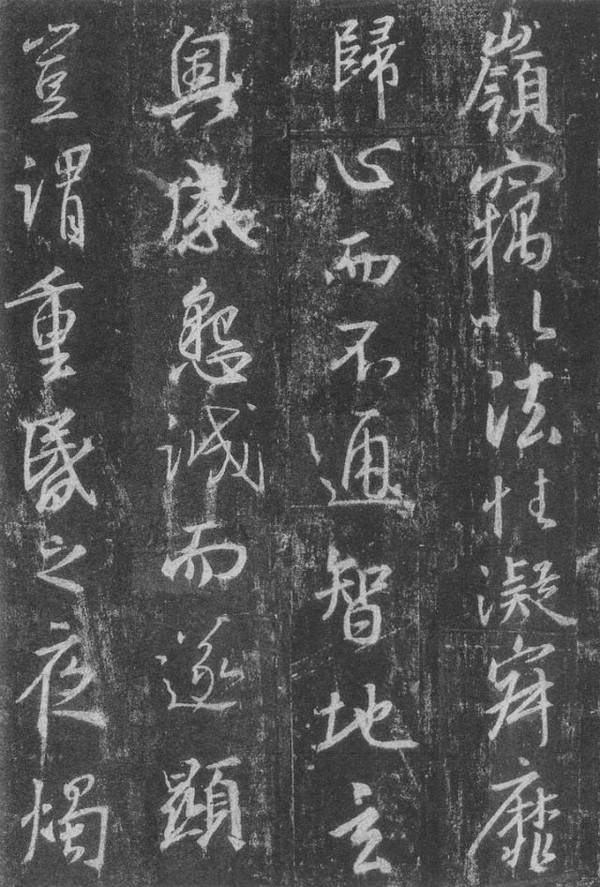 嶺竊以法性凝寂靡
歸心而不通智地玄
奥感懇誠而遂顯
豈謂重昏之夜燭